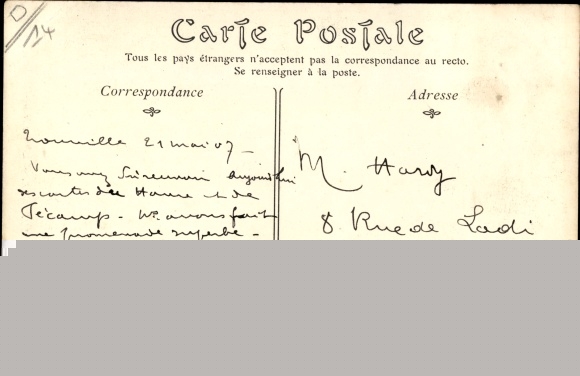 0/14
Carte Postale
Tous les pays étrangers n'acceptent pas la correspondance au recto.
Se renseigner à la poste.
Correspondance
Adresse
Trouville 21 mai 07 -
Vous avez aujourd'hui
des cartes du Havre et de
Fécamp - Ns avons fait
une promenade superbe -
M. Hardy
8 Rue de Lodi